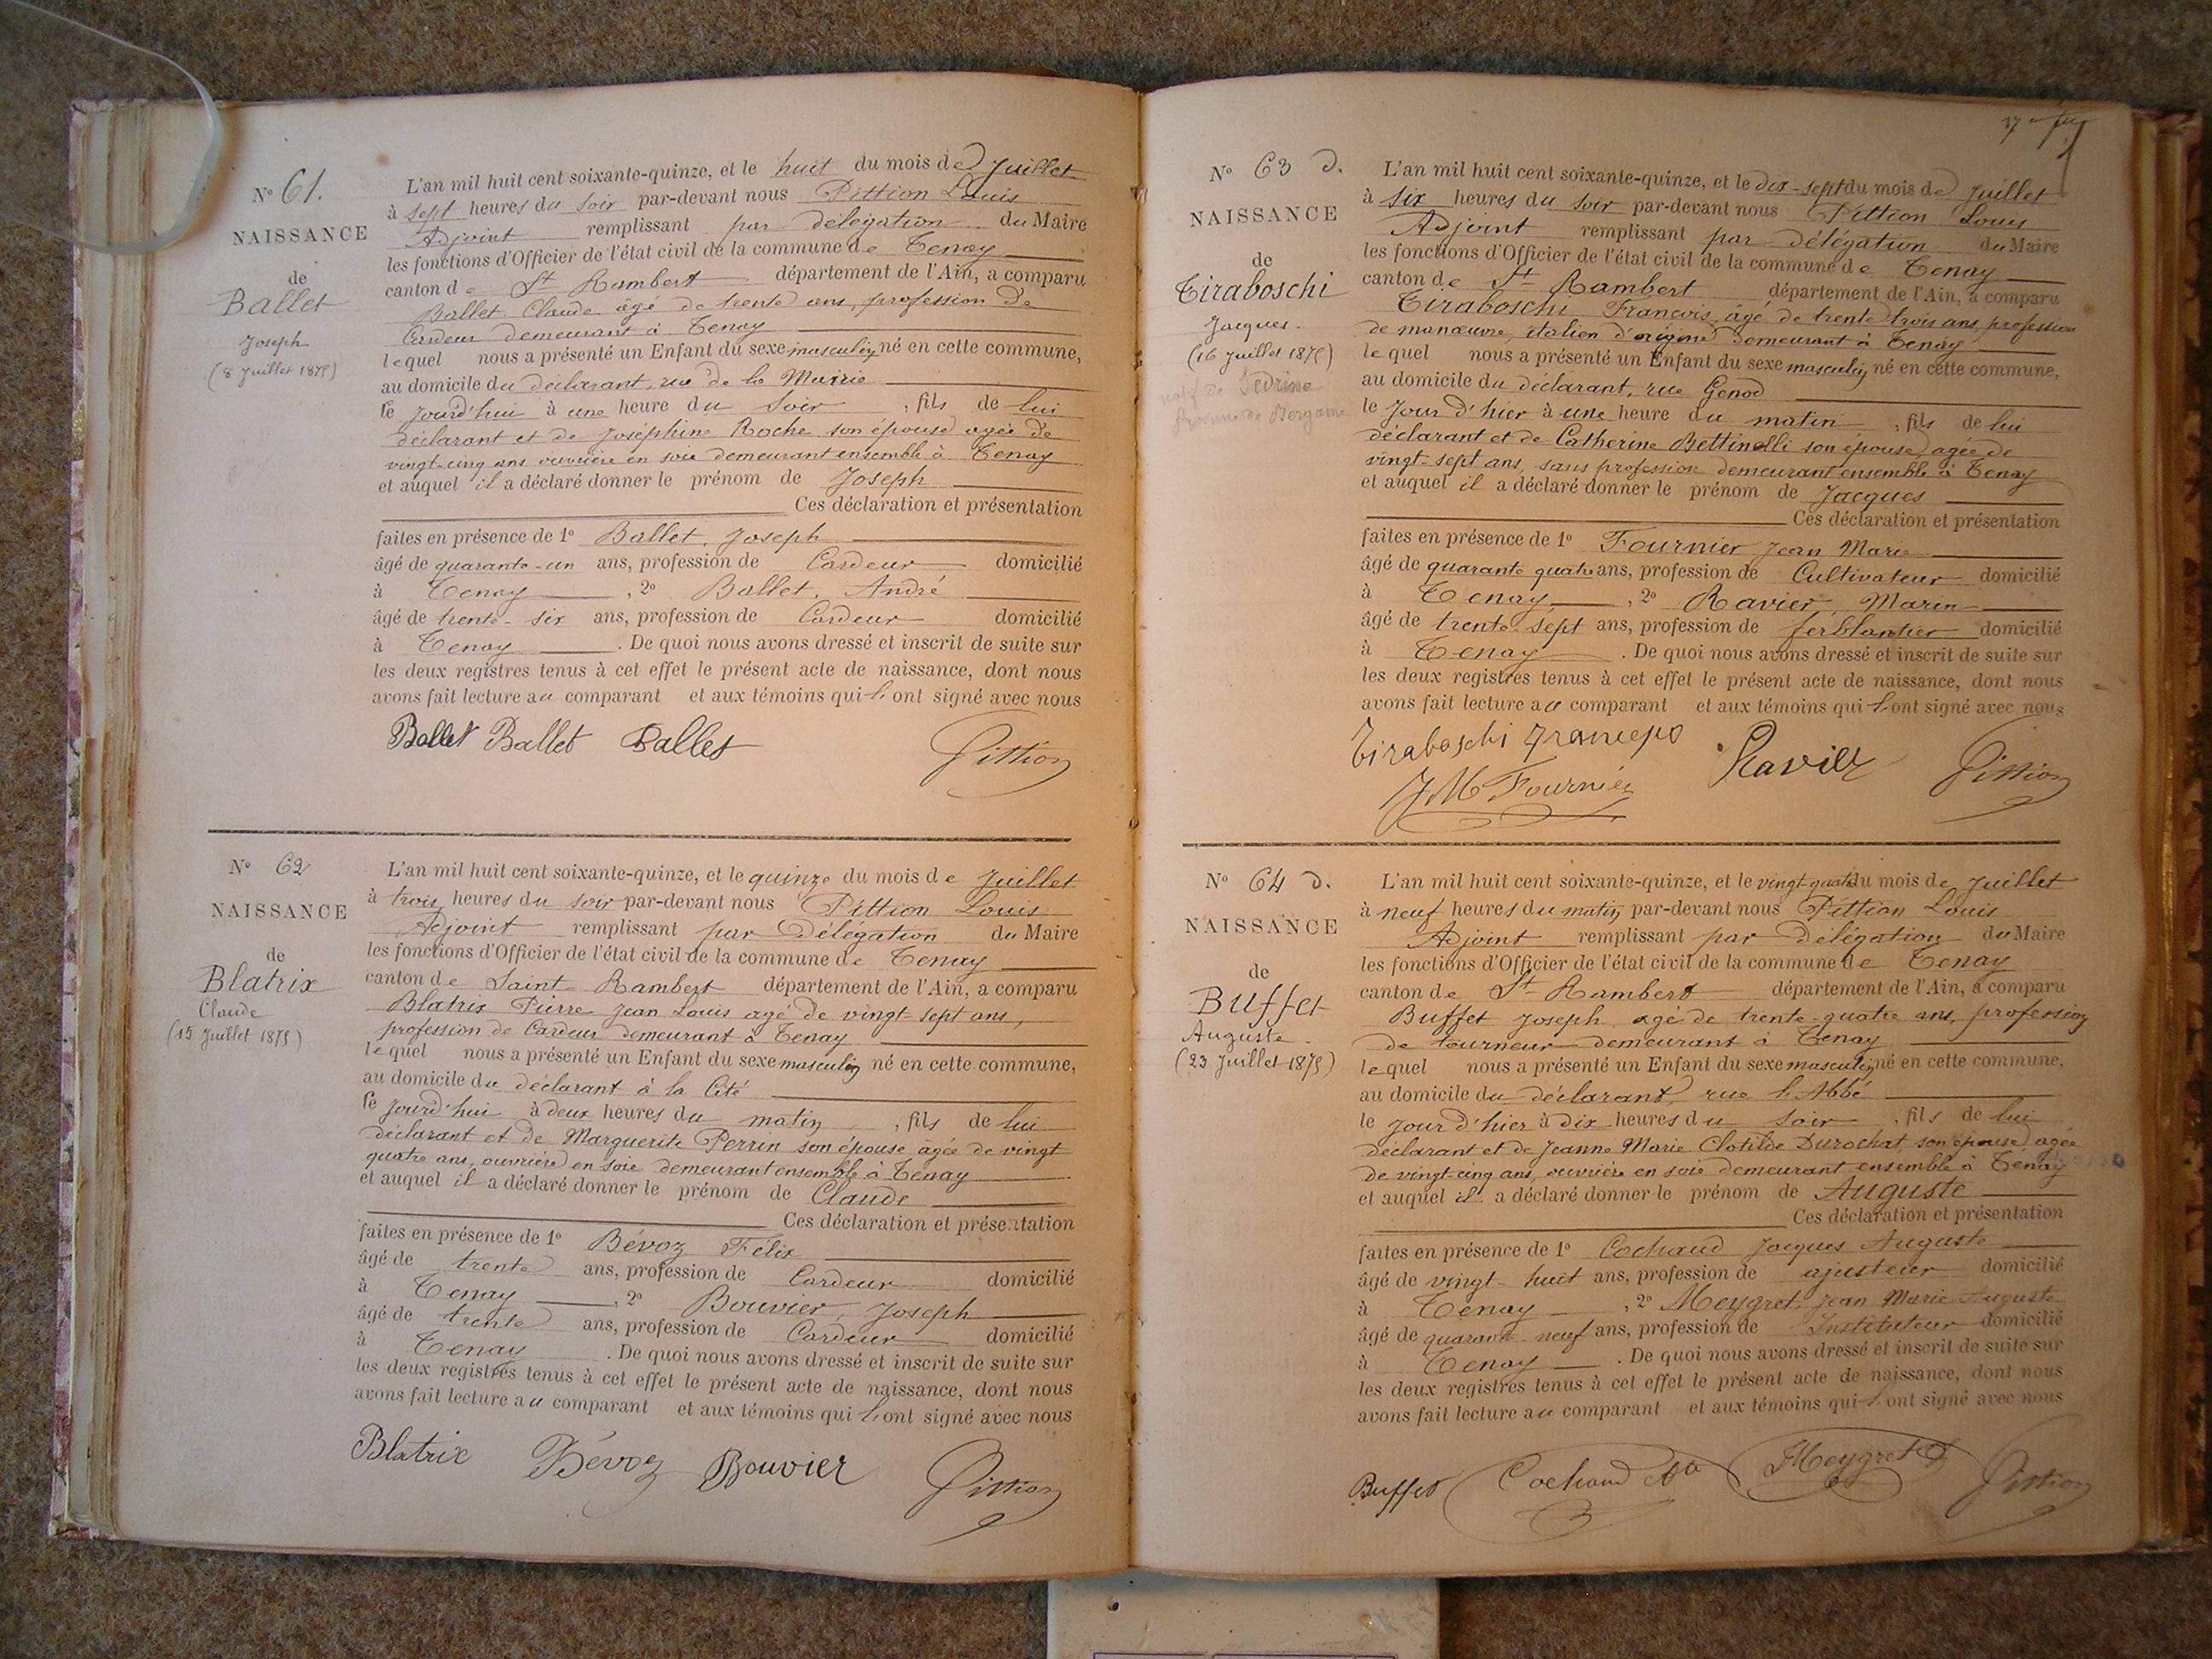 N° 61.
NAISSANCE
de
Ballet
Joseph
(8 Juillet 1875)
L'an mil huit cent soixante-quinze, et le huit du mois de Juillet
à sept heures du soir par-devant nous Pittion Louis
Adjoint remplissant par délégation du Maire
les fonctions d'Officier de l'état civil de la commune de Tenay
canton de St Rambert département de l'Ain, a comparu
Ballet Claude âgé de trente ans, profession de
Cardeur demeurant à Tenay
lequel nous a présenté un Enfant du sexe masculin né en cette commune,
au domicile du déclarant, rue de la Mairie
le jourd'hui à une heure du soir, fils de lui
déclarant et de Joséphine Roche son épouse agée de
vingt-cinq ans ouvrière en soie demeurant ensemble à Tenay
et auquel il a déclaré donner le prénom de Joseph
Ces déclaration et présentation
faites en présence de 1° Ballet, Joseph
âgé de quarante-un ans, profession de Cardeur domicilié
à Tenay, 2° Ballet, André
âgé de trente-six ans, profession de Cardeur domicilié
à Tenay. De quoi nous avons dressé et inscrit de suite sur
les deux registres tenus à cet effet le présent acte de naissance, dont nous
avons fait lecture au comparant et aux témoins qui l'ont signé avec nous
Ballet Ballet Ballet Pittion
N° 62
NAISSANCE
de
Blatrix
Claude
(15 Juillet 1875)
L'an mil huit cent soixante-quinze, et le quinze du mois de Juillet
à trois heures du soir par-devant nous Pittion Louis
Adjoint remplissant par Délégation du Maire
les fonctions d'Officier de l'état civil de la commune de Tenay
canton de Saint Rambert département de l'Ain, a comparu
Blatrix Pierre Jean Louis agé de vingt-sept ans,
profession de Cardeur demeurant à Tenay
lequel nous a présenté un Enfant du sexe masculin né en cette commune,
au domicile du déclarant à la Cité
le jourd'hui à deux heures du matin, fils de lui
déclarant et de Marguerite Perrin son épouse âgée de vingt
quatre ans, ouvrière en soie demeurant ensemble à Tenay
et auquel il a déclaré donner le prénom de Claude
Ces déclaration et présentation
faites en présence de 1° Bévoz Félix
âgé de trente ans, profession de Cardeur domicilié
à Tenay, 2° Bouvier, Joseph
âgé de trente ans, profession de Cardeur domicilié
à Tenay. De quoi nous avons dressé et inscrit de suite sur
les deux registres tenus à cet effet le présent acte de naissance, dont nous
avons fait lecture au comparant et aux témoins qui l'ont signé avec nous
Blatrix Bévoz Bouvier Pittion
17
N° 63 D.
NAISSANCE
de
Tiraboschi
Jacques
(16 Juillet 1875)
natif de Sedrina
de Bergame
L'an mil huit cent soixante-quinze, et le dix-sept du mois de Juillet
à six heures du soir par-devant nous Pittion Louis
Adjoint remplissant par délégation du Maire
les fonctions d'Officier de l'état civil de la commune de Tenay
canton de St Rambert département de l'Ain, a comparu
Tiraboschi François, âgé de trente trois ans, profession
de manœuvre, italien d'origine demeurant à Tenay
lequel nous a présenté un Enfant du sexe masculin né en cette commune,
au domicile du déclarant, rue Genod
le jour d'hier à une heure du matin, fils de lui
déclarant et de Catherine Bettinelli son épouse agée de
vingt-sept ans, sans profession demeurant ensemble à Tenay
et auquel il a déclaré donner le prénom de Jacques
Ces déclaration et présentation
faites en présence de 1° Fournier Jean Marie
âgé de quarante quatre ans, profession de Cultivateur domicilié
à Tenay, 2° Ravier, Marin
âgé de trente-sept ans, profession de ferblantier domicilié
à Tenay. De quoi nous avons dressé et inscrit de suite sur
les deux registres tenus à cet effet le présent acte de naissance, dont nous
avons fait lecture au comparant et aux témoins qui l'ont signé avec nous
Tiraboschi Ravier Pittion
JM Fournier
N° 64 D.
NAISSANCE
de
Buffet
Auguste
(23 Juillet 1875)
L'an mil huit cent soixante-quinze, et le vingt-quatre du mois de Juillet
à neuf heures du matin par-devant nous Pittion Louis
Adjoint remplissant par délégation du Maire
les fonctions d'Officier de l'état civil de la commune de Tenay
canton de St Rambert département de l'Ain, a comparu
Buffet Joseph agé de trente-quatre ans, profession
de tourneur demeurant à Tenay
lequel nous a présenté un Enfant du sexe masculin né en cette commune,
au domicile du déclarant, rue l'Abbé
le jour d'hier à dix heures du soir, fils de lui
déclarant et de Jeanne Marie Clotilde Durochat, son épouse agée
de vingt-cinq ans, ouvrière en soie demeurant ensemble à Tenay
et auquel il a déclaré donner le prénom de Auguste
Ces déclaration et présentation
faites en présence de 1° Cochaud Jacques Auguste
âgé de vingt-huit ans, profession de ajusteur domicilié
à Tenay, 2° Meygret, Jean Marie Auguste
âgé de quarante-neuf ans, profession de Instituteur domicilié
à Tenay. De quoi nous avons dressé et inscrit de suite sur
les deux registres tenus à cet effet le présent acte de naissance, dont nous
avons fait lecture au comparant et aux témoins qui l'ont signé avec nous
Buffet Cochaud Meygret Pittion